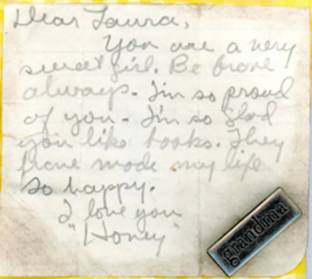 Dear Laura,
You are a very
sweet girl. Be brave
always. I'm so proud
of you. I'm so glad
you like books. They
have made my life
so happy.
I love you
"Honey"
grandma